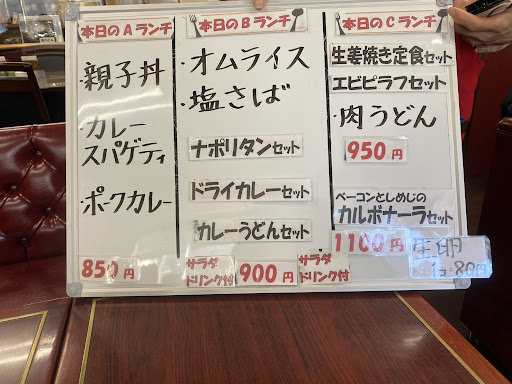 本日のAランチ
・親子丼
・カレー
スパゲティ
・ポークカレー
850円
サラダ
ドリンク付
本日のBランチ
・オムライス
・塩さば
ナポリタンセット
ドライカレーセット
カレーうどんセット
900円
サラダ
ドリンク付
本日のCランチ
生姜焼き定食セット
エビピラフセット
・肉うどん
950円
ベーコンとしめじの
カルボナーラセット
1100円
生卵
1コ80円